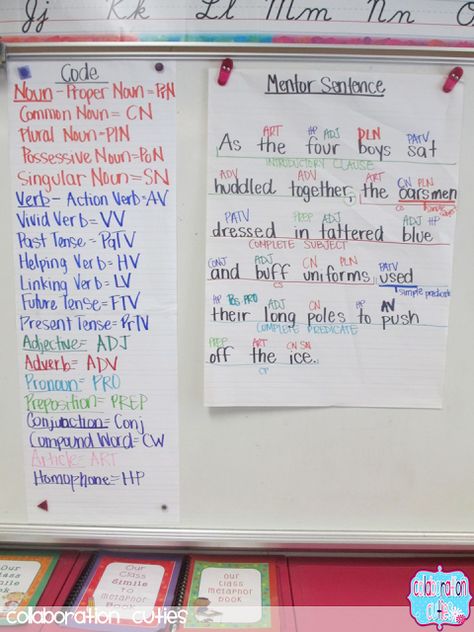 Jj Kk Ll Mm Nn O
Code
Noun - Proper Noun = PrN
Common Noun = CN
Plural Noun = PlN
Possessive Noun = PoN
Singular Noun = SN
Verb - Action Verb = AV
Vivid Verb = VV
Past Tense = PaTV
Helping Verb = HV
Linking Verb = LV
Future Tense = FTV
Present Tense = PrTV
Adjective = ADJ
Adverb = ADV
Pronoun = PRO
Preposition = PREP
Conjunction = Conj
Compound Word = CW
Article = ART
Homophone = HP
Mentor Sentence
ART HP ADJ PLN PATV
As the four boys sat
INTRODUCTORY CLAUSE
ADV ADV ART CN PLN
huddled together, the oarsmen
CS
PATV PREP ADJ ADJ HP
dressed in tattered blue
COMPLETE SUBJECT
CONJ ADJ CN PLN PATV
and buff uniforms used
CS simple predicate
HP Pos PRO ADJ CN HP AV
their long poles to push
COMPLETE PREDICATE
PREP ART CN SN
off the ice.
CP
Our Class Simile
Our Class Simile to Metaphor Book
Our Class Metaphor Book
collaboration cuties
collaboration cuties